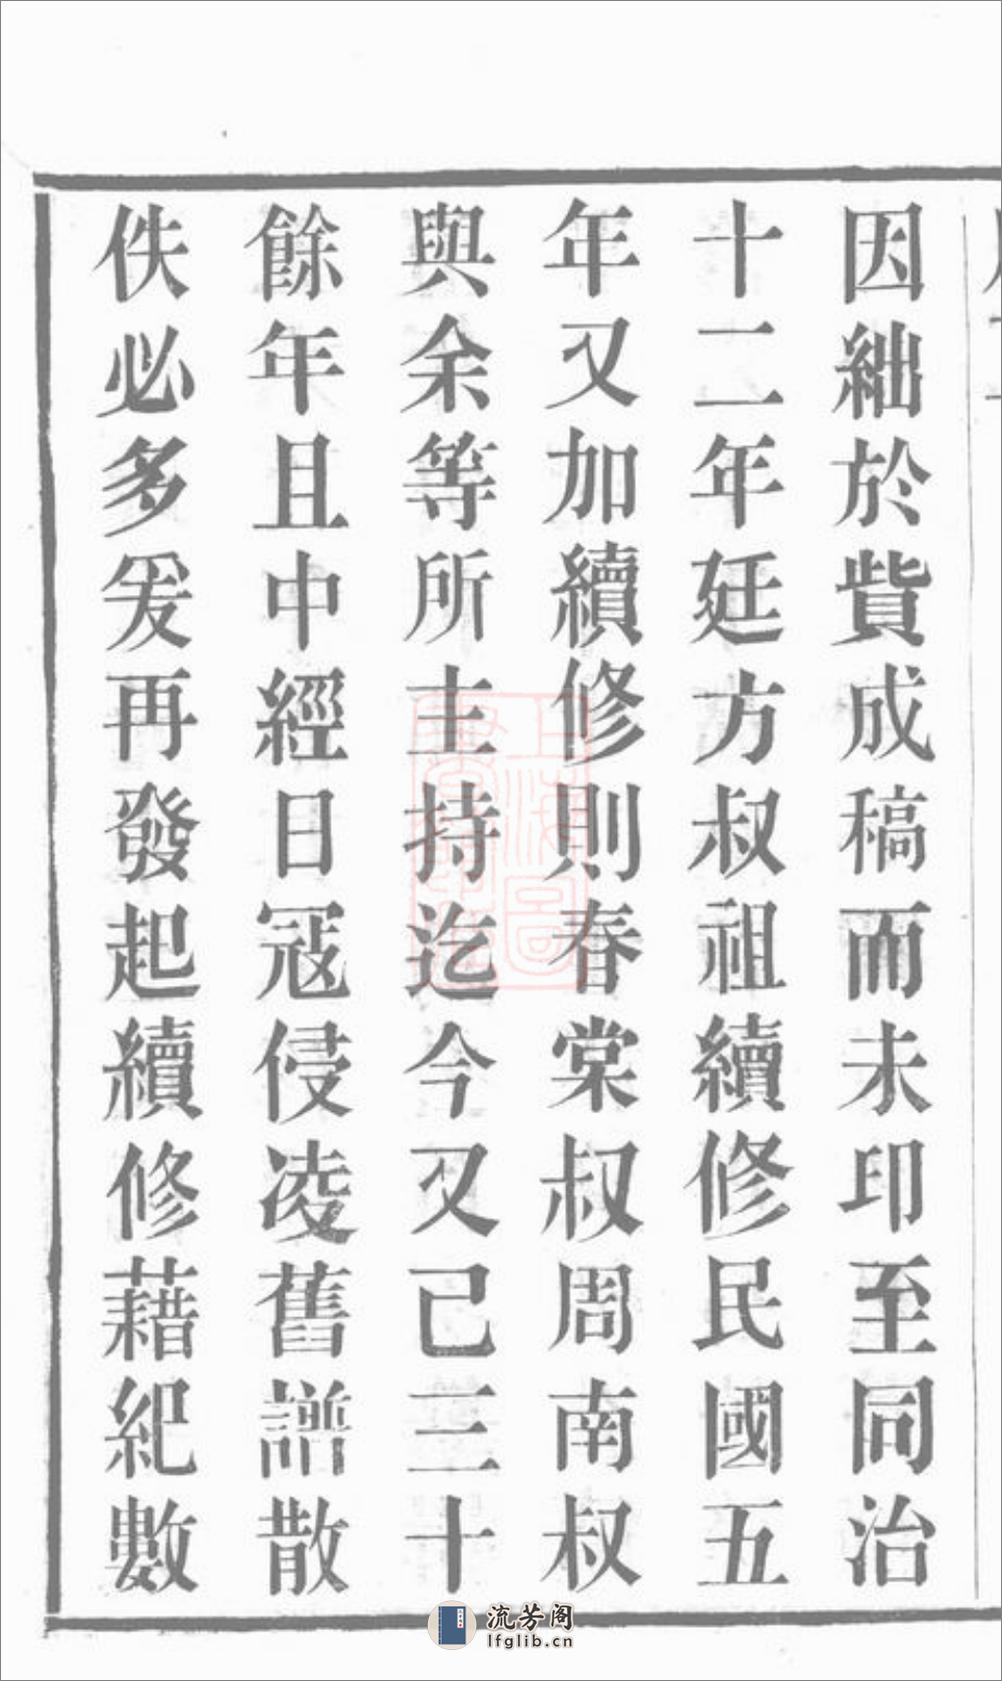 因絀於貲成稿而未印至同治
十二年廷方叔祖續修民國五
年又加續修則春棠叔周南叔
與余等所主持迄今又已三十
餘年且中經日冦侵凌舊譜散
佚必多爰再發起續修藉紀數
流芳阁
lfglib.cn